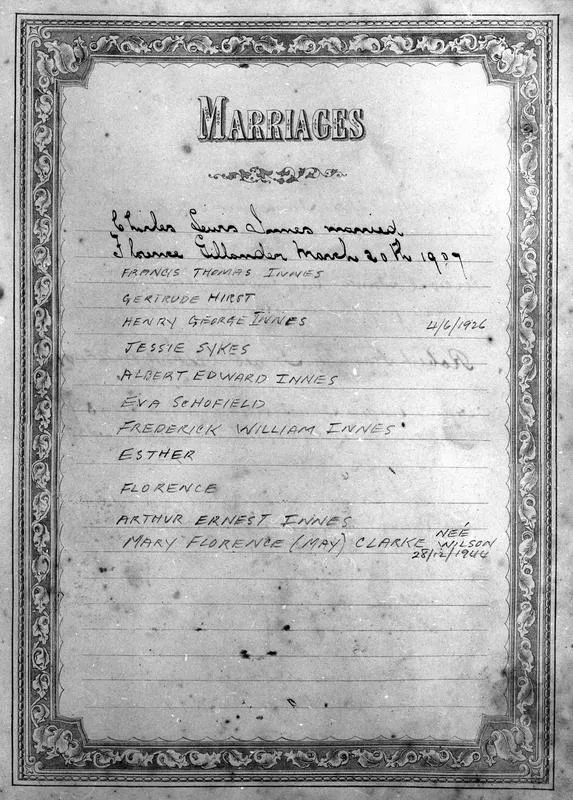 MARRIAGES
Charles Lewis Innes married
Florence Gillander March 20th 1909
FRANCIS THOMAS INNES
GERTRUDE HIRST
HENRY GEORGE INNES 4/6/1926
JESSIE SYKES
ALBERT EDWARD INNES
EVA SCHOFIELD
FREDERICK WILLIAM INNES
ESTHER
FLORENCE
ARTHUR ERNEST INNES
MARY FLORENCE (MAY) CLARKE NEÉ WILSON
28/12/1944